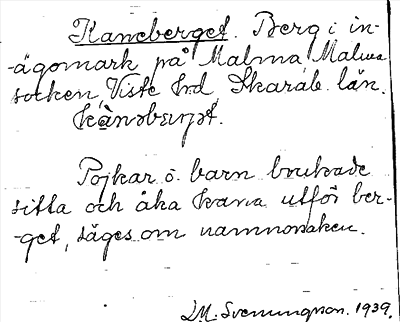 Kaneberget. Berg i in-
-ägomark på Malma Malma
socken, Viste hd Skarab. län.
Pojkar o. barn brukade
sitta och åka kana utför ber-
-get, säges om namnorsaken.
D.M. Svenungson. 1939.